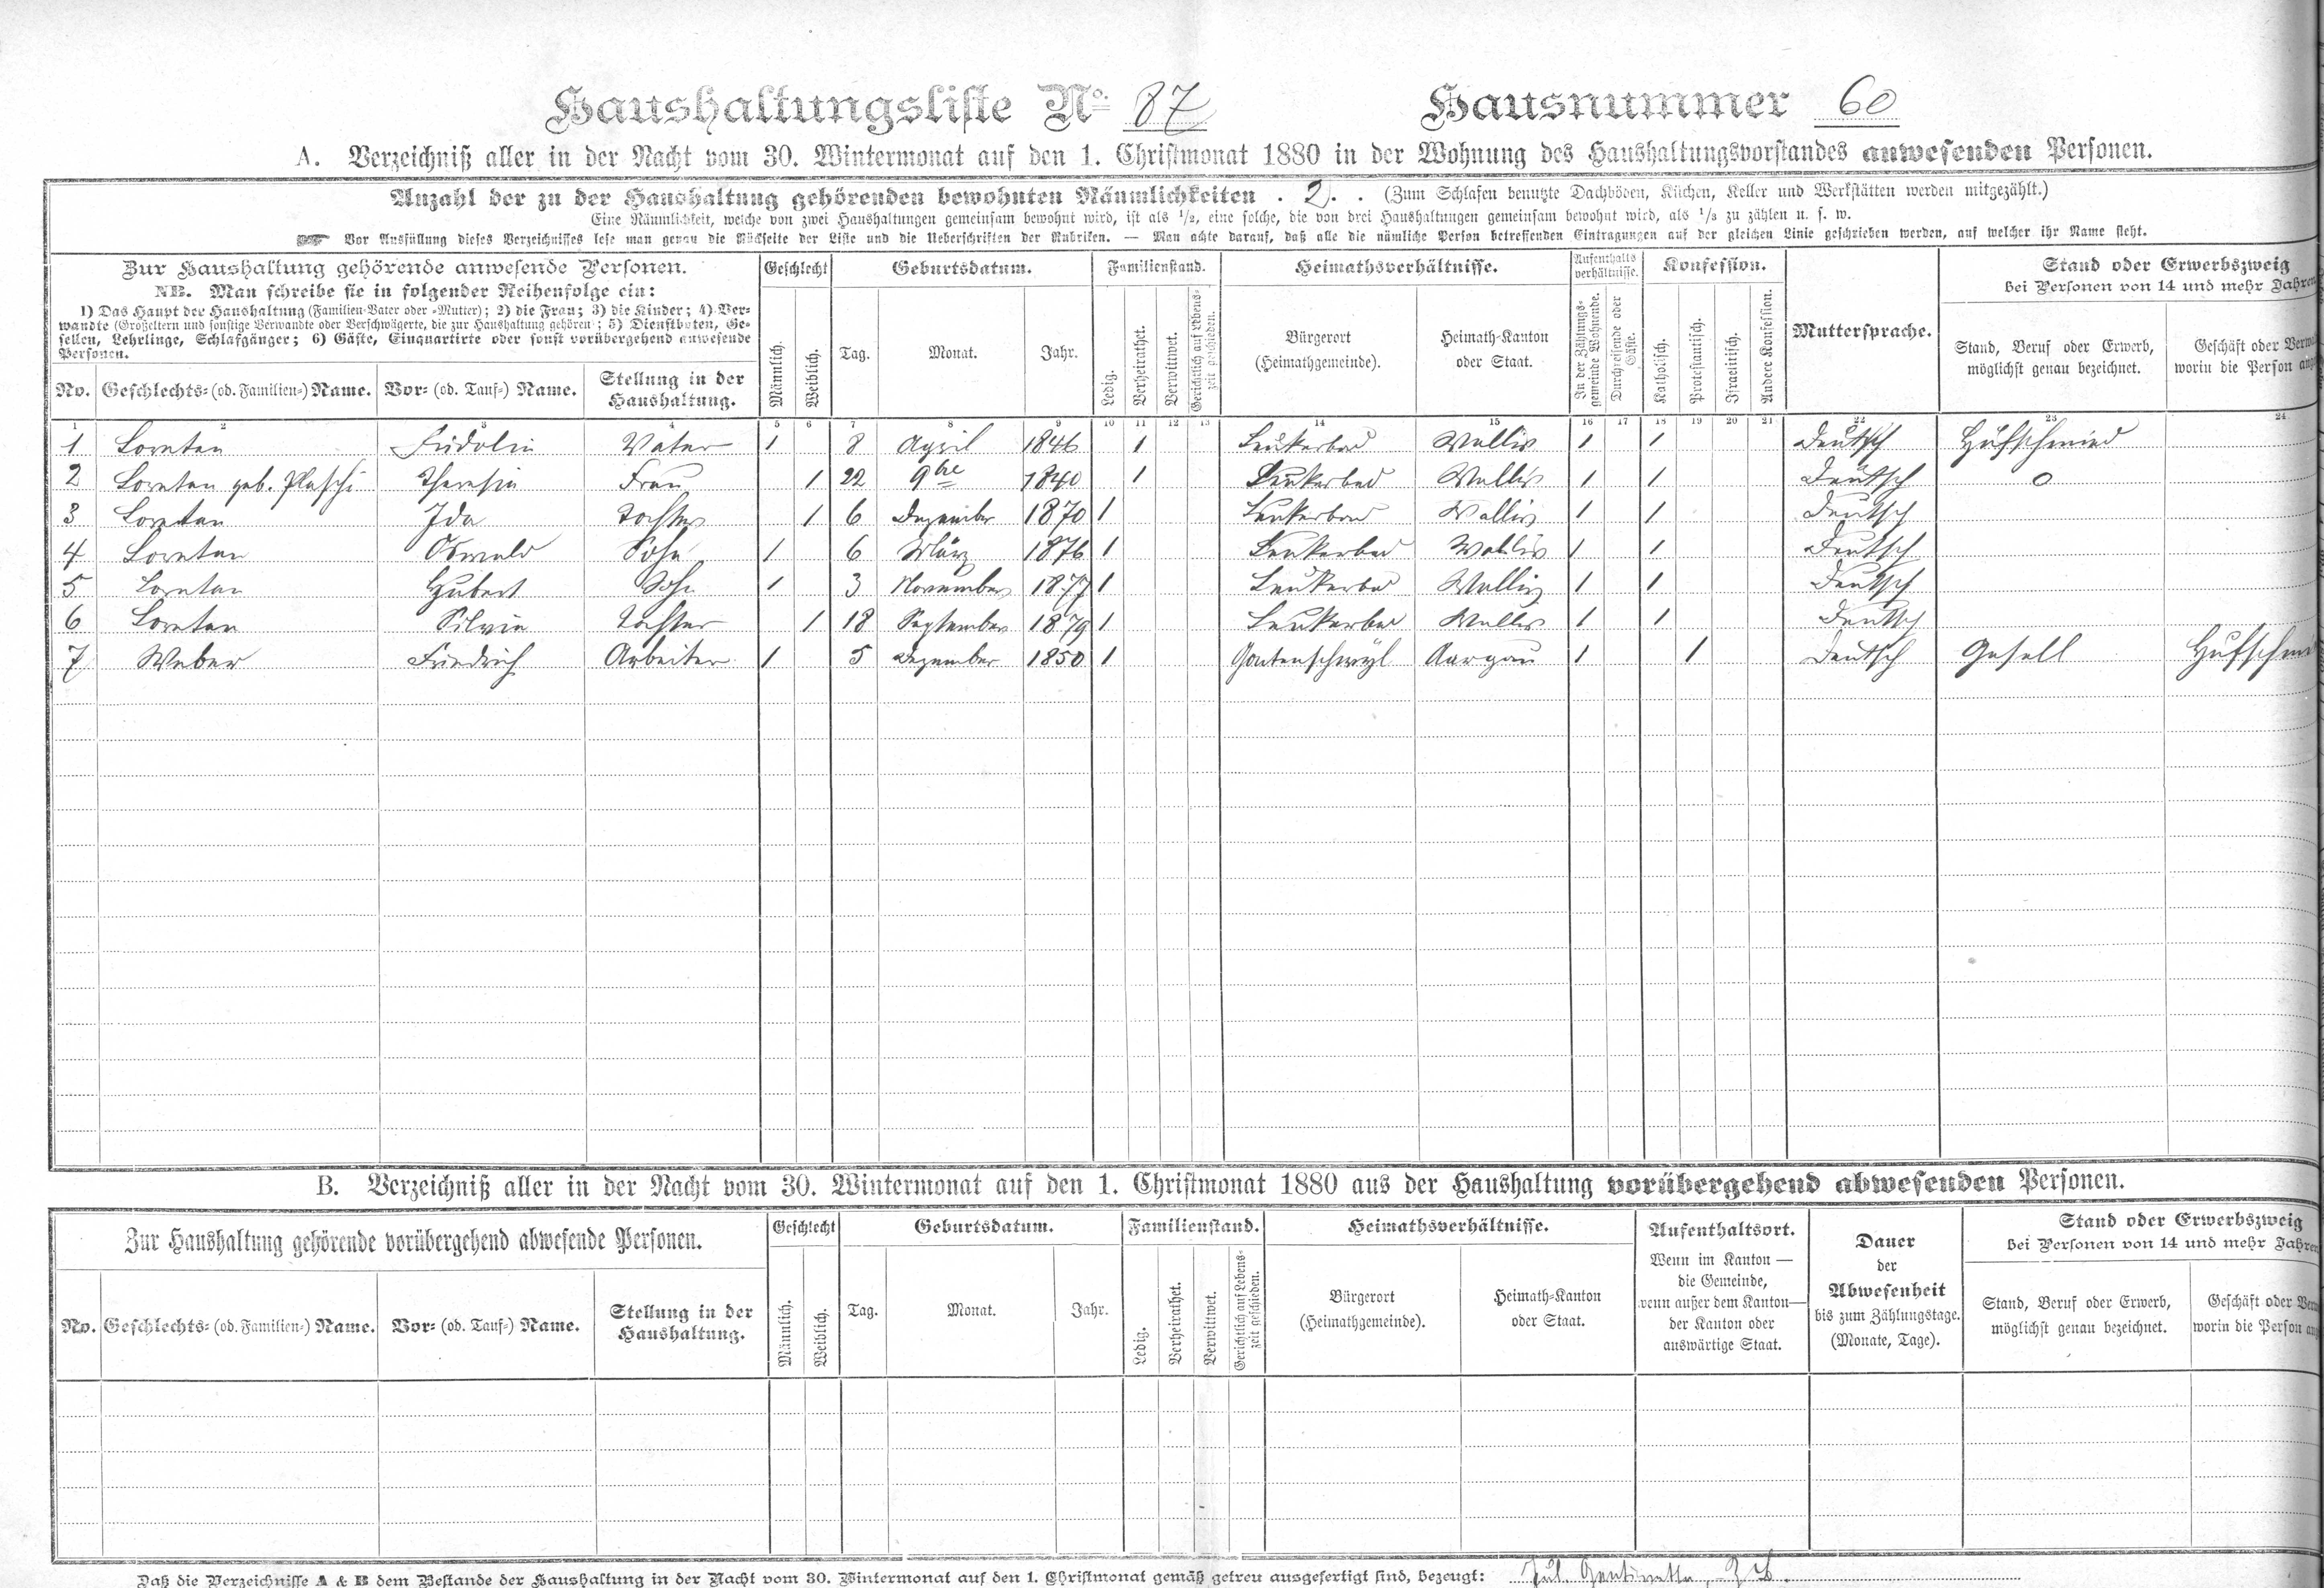 Haushaltungsliste No. 87 Hausnummer 60
A. Verzeichniß aller in der Nacht vom 30. Wintermonat auf den 1. Christmonat 1880 in der Wohnung des Haushaltungsvorstandes anwesenden Personen.
Anzahl der zu der Haushaltung gehörenden bewohnten Räumlichkeiten . 2. . (Zum Schlafen benutzte Dachböden, Küchen, Keller und Werkstätten werden mitgezählt.)
Eine Räumlichkeit, welche von zwei Haushaltungen gemeinsam bewohnt wird, ist als 1/2, eine solche, die von drei Haushaltungen gemeinsam bewohnt wird, als 1/3 zu zählen u. s. w.
Vor Ausfüllung dieses Verzeichnisses lese man genau die Rückseite der Liste und die Ueberschriften der Rubriken. — Man achte darauf, daß alle die nämliche Person betreffenden Eintragungen auf der gleichen Linie geschrieben werden, auf welcher ihr Name steht.
Zur Haushaltung gehörende anwesende Personen.
NB. Man schreibe sie in folgender Reihenfolge ein:
1) Das Haupt der Haushaltung (Familien-Vater oder -Mutter); 2) die Frau; 3) die Kinder; 4) Ver-
wandte (Großeltern und sonstige Verwandte oder Verschwägerte, die zur Haushaltung gehören); 5) Dienstboten, Ge-
sellen, Lehrlinge, Schlafgänger; 6) Gäste, Einquartirte oder sonst vorübergehend anwesende
Personen.
No. Geschlechts- (od. Familien-) Name. Vor- (od. Tauf-) Name. Stellung in der Haushaltung.
Geschlecht
Männlich. Weiblich.
Geburtsdatum.
Tag. Monat. Jahr.
Familienstand.
Ledig. Verheirathet. Verwittwet. Gerichtlich auf Lebens-
zeit geschieden.
Heimathsverhältnisse.
Bürgerort Heimath-Kanton
(Heimathgemeinde). oder Staat.
Aufenthalts
verhältnisse.
In der Zählungs-
gemeinde Wohnende. Durchreisende oder
Gäste.
Konfession.
Katholisch. Protestantisch. Israelitisch. Andere Konfession.
Muttersprache.
Stand oder Erwerbszweig
bei Personen von 14 und mehr Jahren
Stand, Beruf oder Erwerb, Geschäft oder
möglichst genau bezeichnet. worin die Person
1 2 3 4 5 6 7 8 9 10 11 12 13 14 15 16 17 18 19 20 21 22 23 24
1 Loretan Fridolin Vater 1 8 April 1846 1 Leukerbad Wallis 1 1 Deutsch Hufschmied
2 Loretan geb. Plaschi Theresia Frau 1 22 9bre 1840 1 Leukerbad Wallis 1 1 Deutsch 0
3 Loretan Ida Tochter 1 6 Dezember 1870 1 Leukerbad Wallis 1 1 Deutsch
4 Loretan Oswald Sohn 1 6 März 1876 1 Leukerbad Wallis 1 1 Deutsch
5 Loretan Hubert Sohn 1 3 November 1877 1 Leukerbad Wallis 1 1 Deutsch
6 Loretan Silvia Tochter 1 18 September 1879 1 Leukerbad Wallis 1 1 Deutsch
7 Weber Friedrich Arbeiter 1 5 Dezember 1850 1 Gontenschwyl Aargau 1 1 Deutsch Gesell Hufschm
B. Verzeichniß aller in der Nacht vom 30. Wintermonat auf den 1. Christmonat 1880 aus der Haushaltung vorübergehend abwesenden Personen.
Zur Haushaltung gehörende vorübergehend abwesende Personen.
No. Geschlechts- (od. Familien-) Name. Vor- (od. Tauf-) Name. Stellung in der Haushaltung.
Geschlecht
Männlich. Weiblich.
Geburtsdatum.
Tag. Monat. Jahr.
Familienstand.
Ledig. Verheirathet. Verwittwet. Gerichtlich auf Lebens-
zeit geschieden.
Heimathsverhältnisse.
Bürgerort Heimath-Kanton
(Heimathgemeinde). oder Staat.
Aufenthaltsort.
Wenn im Kanton —
die Gemeinde,
wenn außer dem Kanton—
der Kanton oder
auswärtige Staat.
Dauer
der
Abwesenheit
bis zum Zählungstage.
(Monate, Tage).
Stand oder Erwerbszweig
bei Personen von 14 und mehr Jahren
Stand, Beruf oder Erwerb, Geschäft oder
möglichst genau bezeichnet. worin die Person
Daß die Verzeichnisse A & B dem Bestande der Haushaltung in der Nacht vom 30. Wintermonat auf den 1. Christmonat gemäß getreu ausgefertigt sind, bezeugt: Jul.